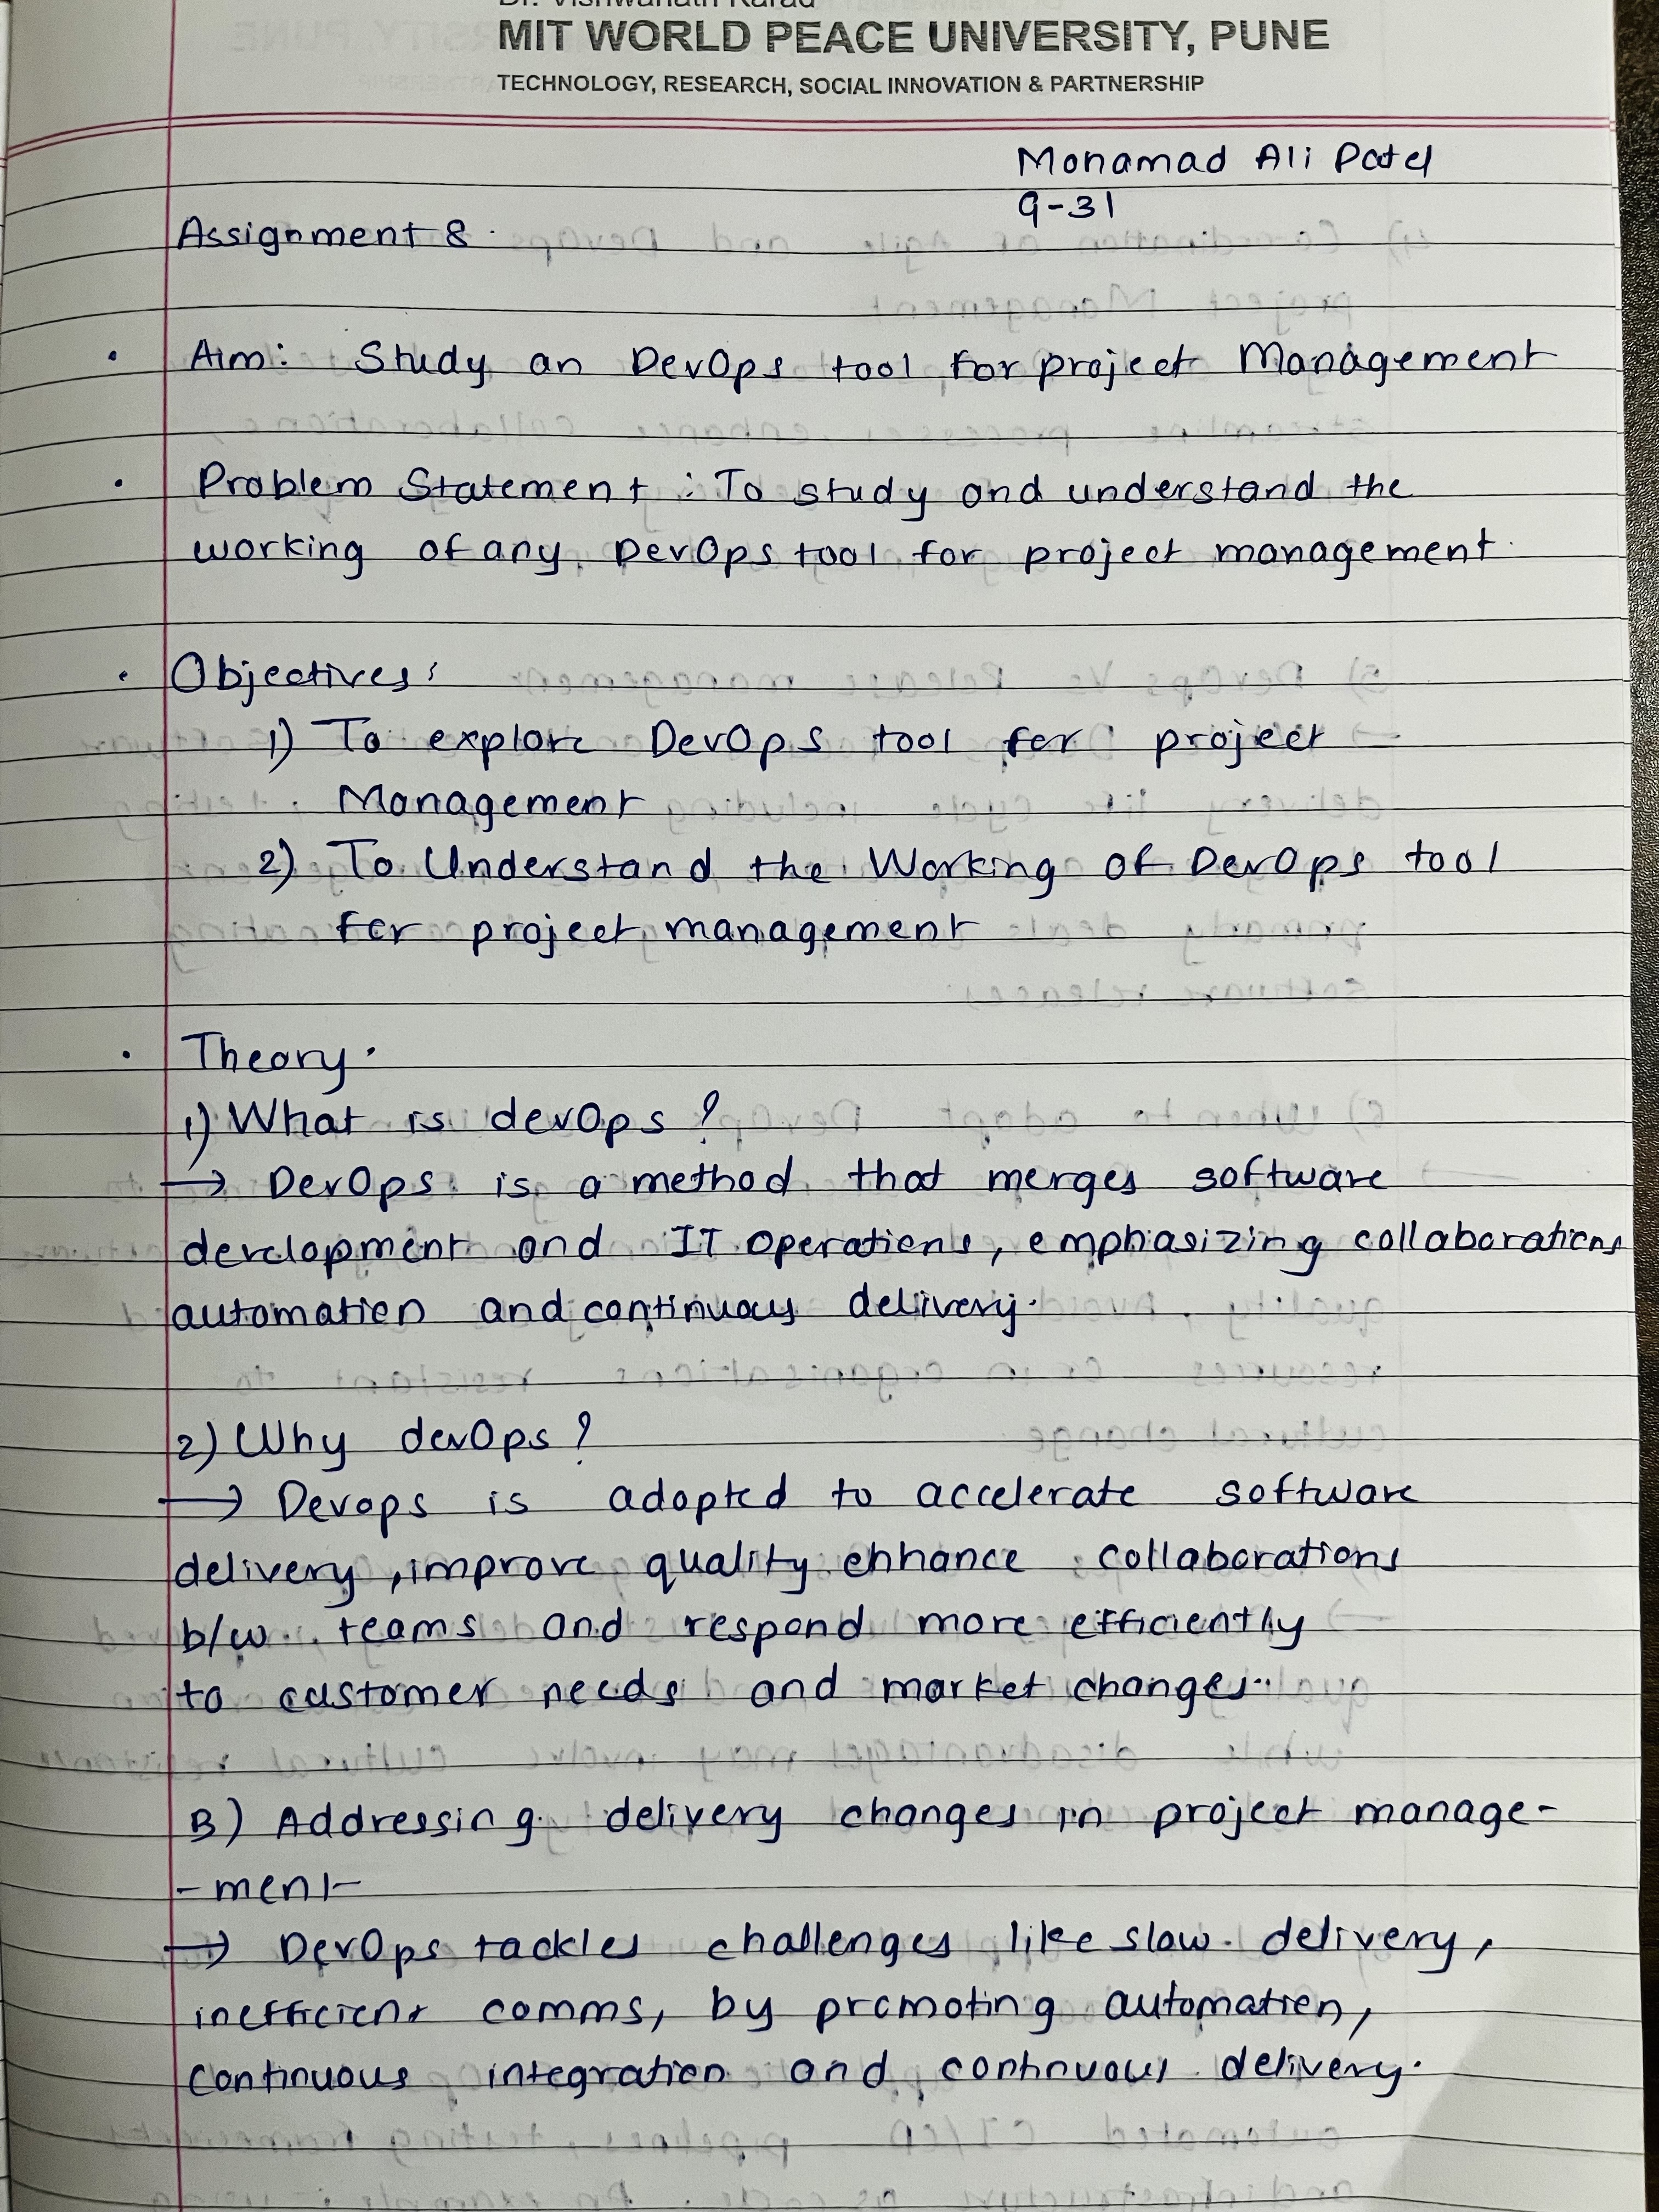 Dr. Vishwanath Karad
MIT WORLD PEACE UNIVERSITY, PUNE
TECHNOLOGY, RESEARCH, SOCIAL INNOVATION & PARTNERSHIP
Mohamad Ali Patel
9-31
Assignment 8.
• Aim: Study an DevOps tool for project Management
• Problem Statement : To study and understand the
working of any DevOps tool for project management.
• Objectives:
1) To explore DevOps tool for project
Management
2) To Understand the Working of DevOps tool
for project management
• Theory.
1) What is devOps?
→ DevOps is a method that merges software
development and IT operations, emphasizing collaborations
automation and continuous delivery.
2) Why devOps?
→ Devops is adopted to accelerate software
delivery, improve quality enhance collaborations
b/w teams and respond more efficiently
to customer needs and market changes.
3) Addressing delivery changes in project manage-
-ment
→ DevOps tackles challenges like slow delivery,
inefficient comms, by promoting automation,
continuous integration and continuous delivery.